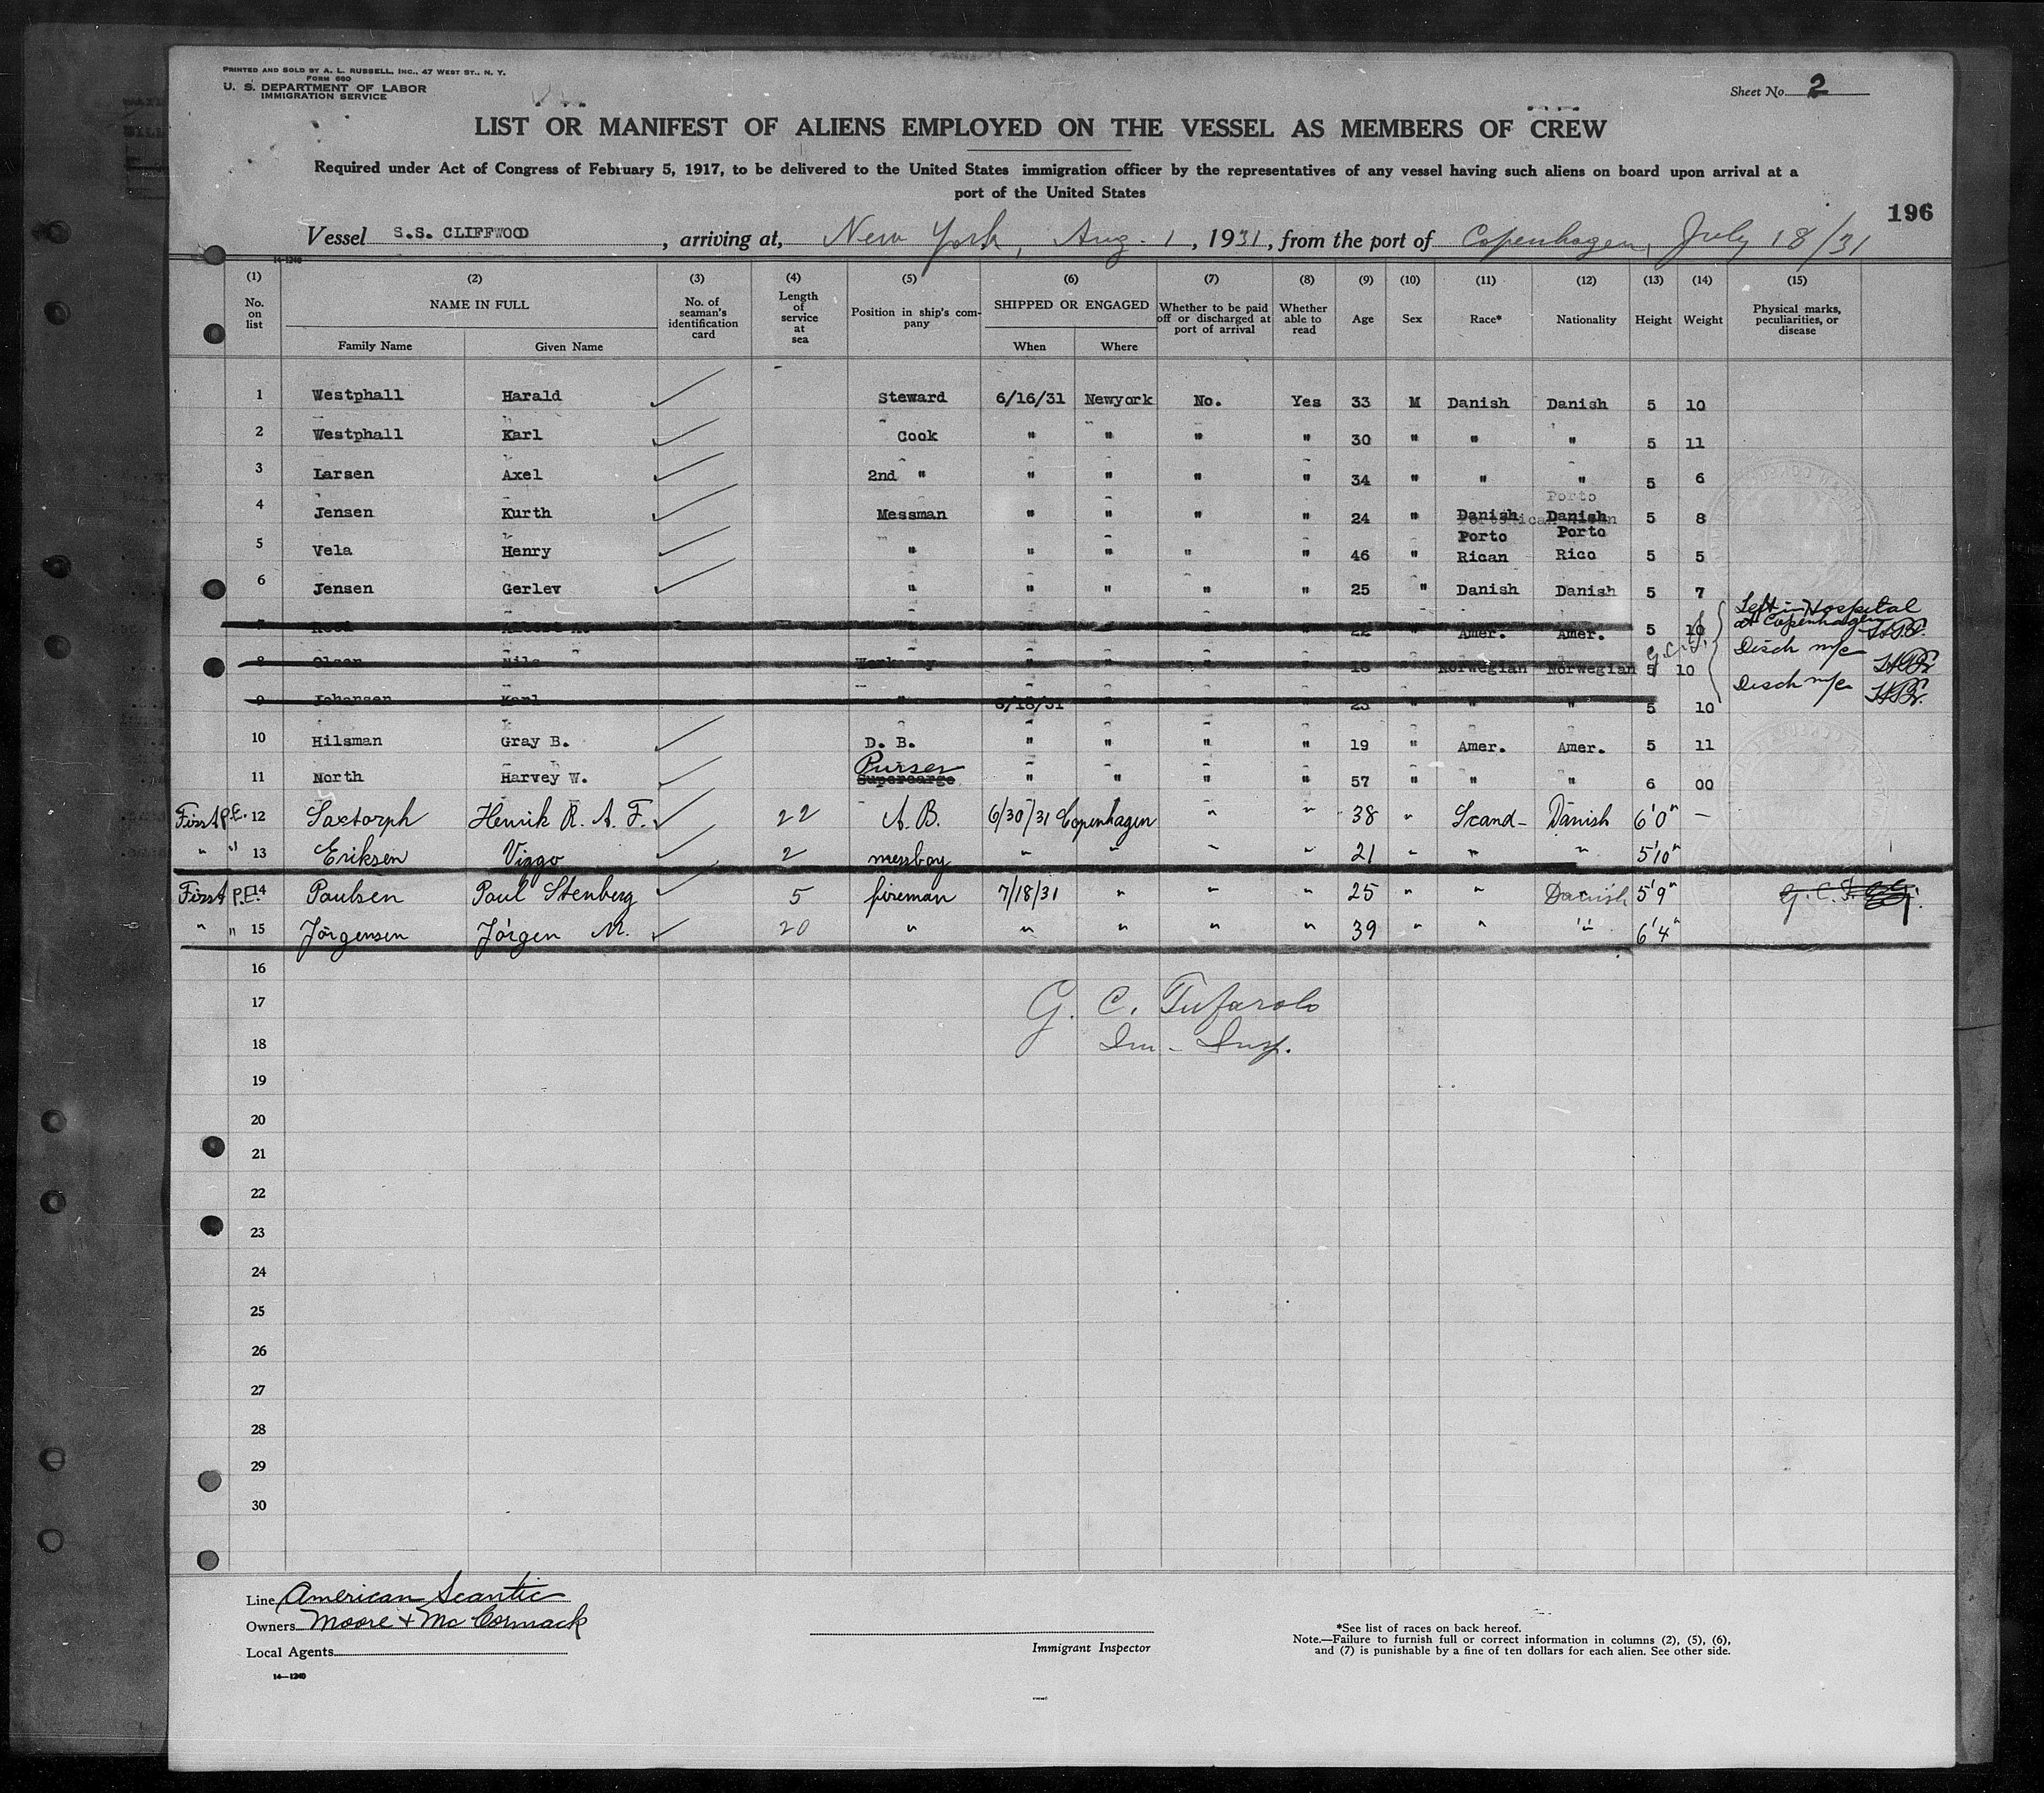 PRINTED AND SOLD BY A. L. RUSSELL, INC., 47 WEST ST., N. Y.
FORM 680
U. S. DEPARTMENT OF LABOR
IMMIGRATION SERVICE
Sheet No. 2
LIST OR MANIFEST OF ALIENS EMPLOYED ON THE VESSEL AS MEMBERS OF CREW
Required under Act of Congress of February 5, 1917, to be delivered to the United States immigration officer by the representatives of any vessel having such aliens on board upon arrival at a
port of the United States
196
Vessel S.S. CLIFFWOOD, arriving at, New York, Aug. 1, 1931, from the port of Copenhagen, July 18/31
14-1240
(1) (2) (3) (4) (5) (6) (7) (8) (9) (10) (11) (12) (13) (14) (15)
No. on list NAME IN FULL Family Name Given Name No. of seaman's identification card Length of service at sea Position in ship's company SHIPPED OR ENGAGED When Where Whether to be paid off or discharged at port of arrival Whether able to read Age Sex Race* Nationality Height Weight Physical marks, peculiarities, or disease
1 Westphall Harald Steward 6/16/31 Newyork No. Yes 33 M Danish Danish 5 10
2 Westphall Karl Cook " " " " 30 " " " 5 11
3 Larsen Axel 2nd " " " " " 34 " " " 5 6
Porto
4 Jensen Kurth Messman " " " " 24 " Danish Danish 5 8
5 Vela Henry " " " " " 46 " Porto Rican Porto Rico 5 5
6 Jensen Gerlev " " " " " 25 " Danish Danish 5 7
7 Albert 22 " Amer. Amer. 5 10 Left in Hospital at Copenhagen
G. C. T.
8 Olsen Nils Workaway " " " " 18 " Norwegian Norwegian 5 10 Disch m/c
9 Johansen Karl " 6/18/31 " " " 23 " " " 5 10 Disch m/c
10 Hilsman Gray B. D. B. " " " " 19 " Amer. Amer. 5 11
11 North Harvey W. Supercargo Purser " " " " 57 " " " 6 00
First P.E. 12 Saxtorph Henrik R. A. F. 22 A. B. 6/30/31 Copenhagen " " 38 " Scand- Danish 6'0" —
" " 13 Eriksen Viggo 2 messboy " " " " 21 " " " 5'10"
First P.E. 14 Paulsen Paul Stenberg 5 fireman 7/18/31 " " " 25 " " Danish 5'9" G. C. T.
" " 15 Jörgensen Jörgen M. 20 " " " " " 39 " " " 6'4"
16
17 G. C. Tufarolo
18 Im - Insp.
19
20
21
22
23
24
25
26
27
28
29
30
Line American Scantic
Owners Moore & McCormack
Local Agents
Immigrant Inspector
*See list of races on back hereof.
Note.—Failure to furnish full or correct information in columns (2), (5), (6),
and (7) is punishable by a fine of ten dollars for each alien. See other side.
14—1240